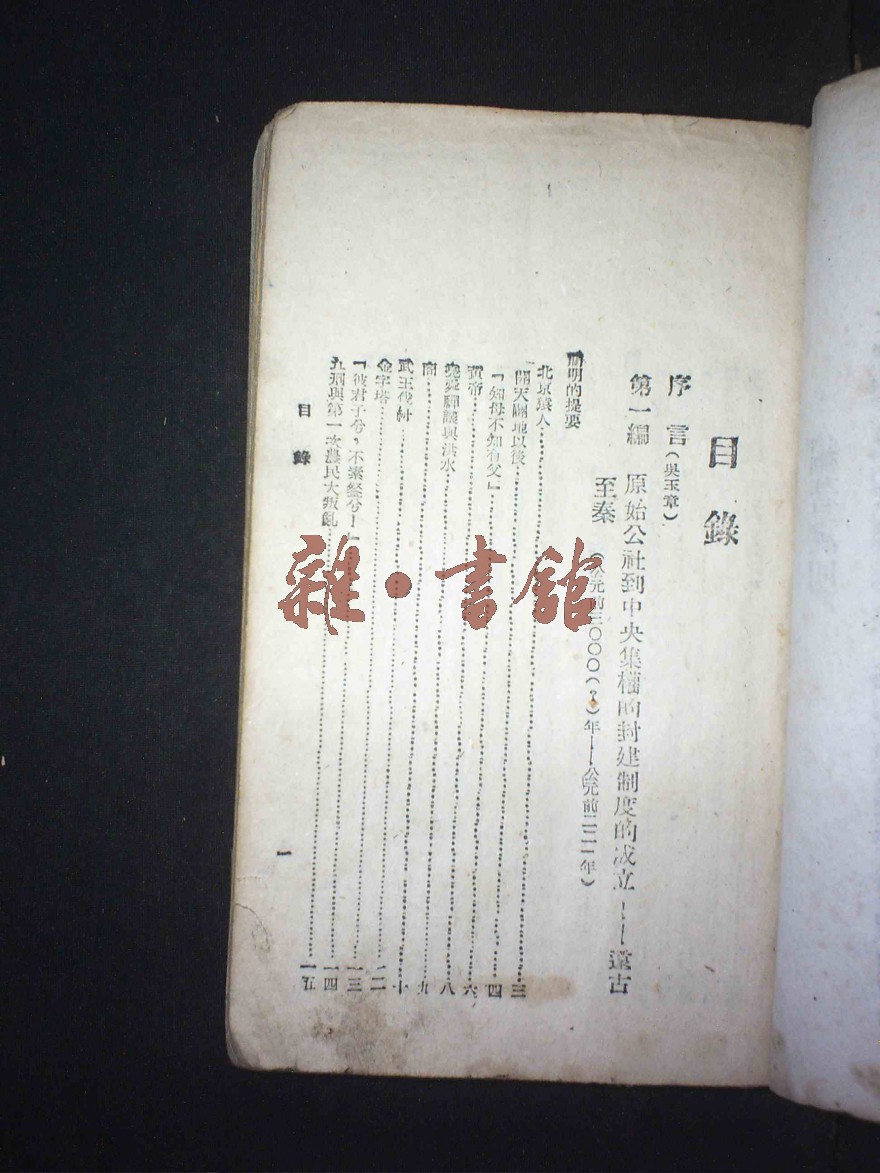 目錄
序言（吳玉章）
第一編 原始公社到中央集權的封建制度的成立——遠古
至秦（公元前三〇〇〇（？）年——公元前二二一年）
簡明的提要
北京猿人……三
「開天闢地以後……四
「知母不知有父」……六
黃帝……八
堯舜禪讓與洪水……九
商……十
武王伐紂……一二
金字塔……一三
「彼君子兮，不素餐兮！」……一四
五刑與第一次農民大叛亂……一五
目錄
一
雜·書館